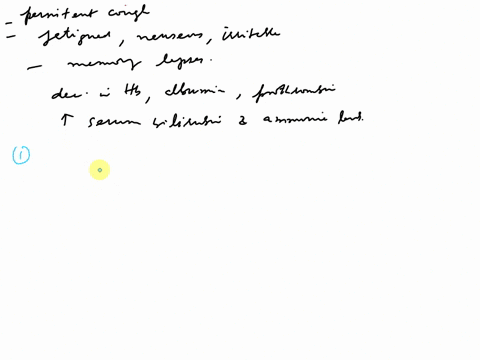 - persistent cough
- fatigued, nervous, irritable
- memory lapses.
dec. in Hb, albumin, prothrombin
↑ serum bilirubin & ammonia level.
①